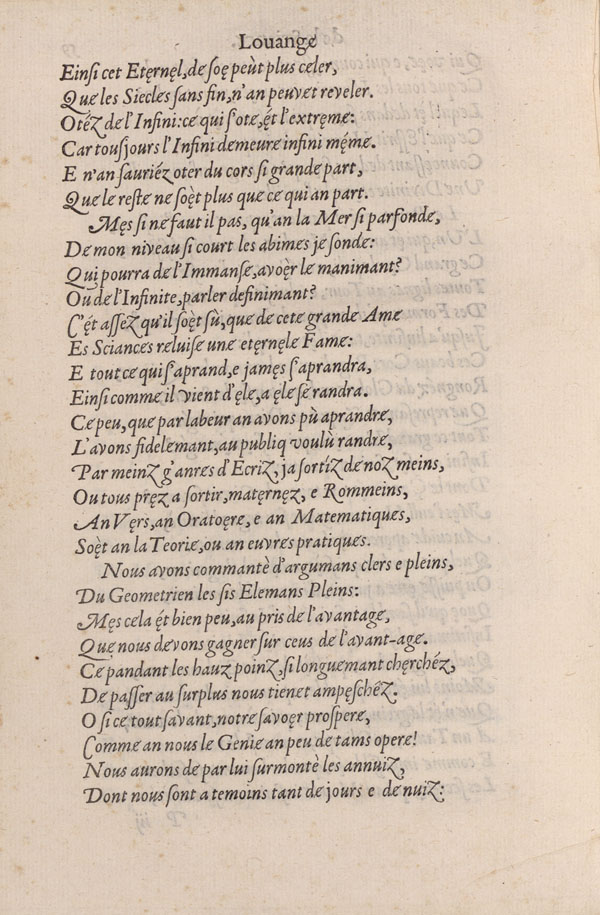 Louange
Einſi cet Etęrnęl, de ſoę peùt plus celer,
Que les Siecles ſans fin, n'an peuvet reveler.
Otéz de l'Infini: ce qui s'ote, ęt l'extręme:
Car tousjours l'Infini demeure infini méme.
E n'an ſauriéz oter du cors ſi grande part,
Que le reſte ne ſoęt plus que ce qui an part.
Męs ſi ne faut il pas, qu'an la Mer ſi parfonde,
De mon niveau ſi court les abimes je ſonde:
Qui pourra de l'Immanſe, avoęr le manimant?
Ou de l'Infinite, parler definimant?
C'ęt aſſez qu'il ſoęt sù, que de cete grande Ame
Es Sciances reluiſe une etęrnęle Fame:
E tout ce qui s'aprand, e jamęs s'aprandra,
Einſi comme il vient d'ęle, a ęle se randra.
Ce peu, que par labeur an avons pù aprandre,
L'avons fidelemant, au publiq voulù randre,
Par meinz g'anres d'Ecriz, ja ſortíz de noz meins,
Ou tous pręz a ſortir, matęrnęz, e Rommeins,
An Vęrs, an Oratoęre, e an Matematiques,
Soęt an la Teorie, ou an euvres pratiques.
Nous avons commantè d'argumans clers e pleins,
Du Geometrien les ſis Elemans Pleins:
Męs cela ęt bien peu, au pris de l'avantage,
Que nous devons gagner ſur ceus de l'avant-age.
Ce pandant les hauz poinz, ſi longuemant chęrchéz,
De paſſer au ſurplus nous tienet ampęſchéz.
O ſi ce tout ſavant, notre ſavoęr proſpere,
Comme an nous le Genie an peu de tams opere!
Nous aurons de par lui ſurmontè les annuiz,
Dont nous ſont a temoins tant de jours e de nuiz: